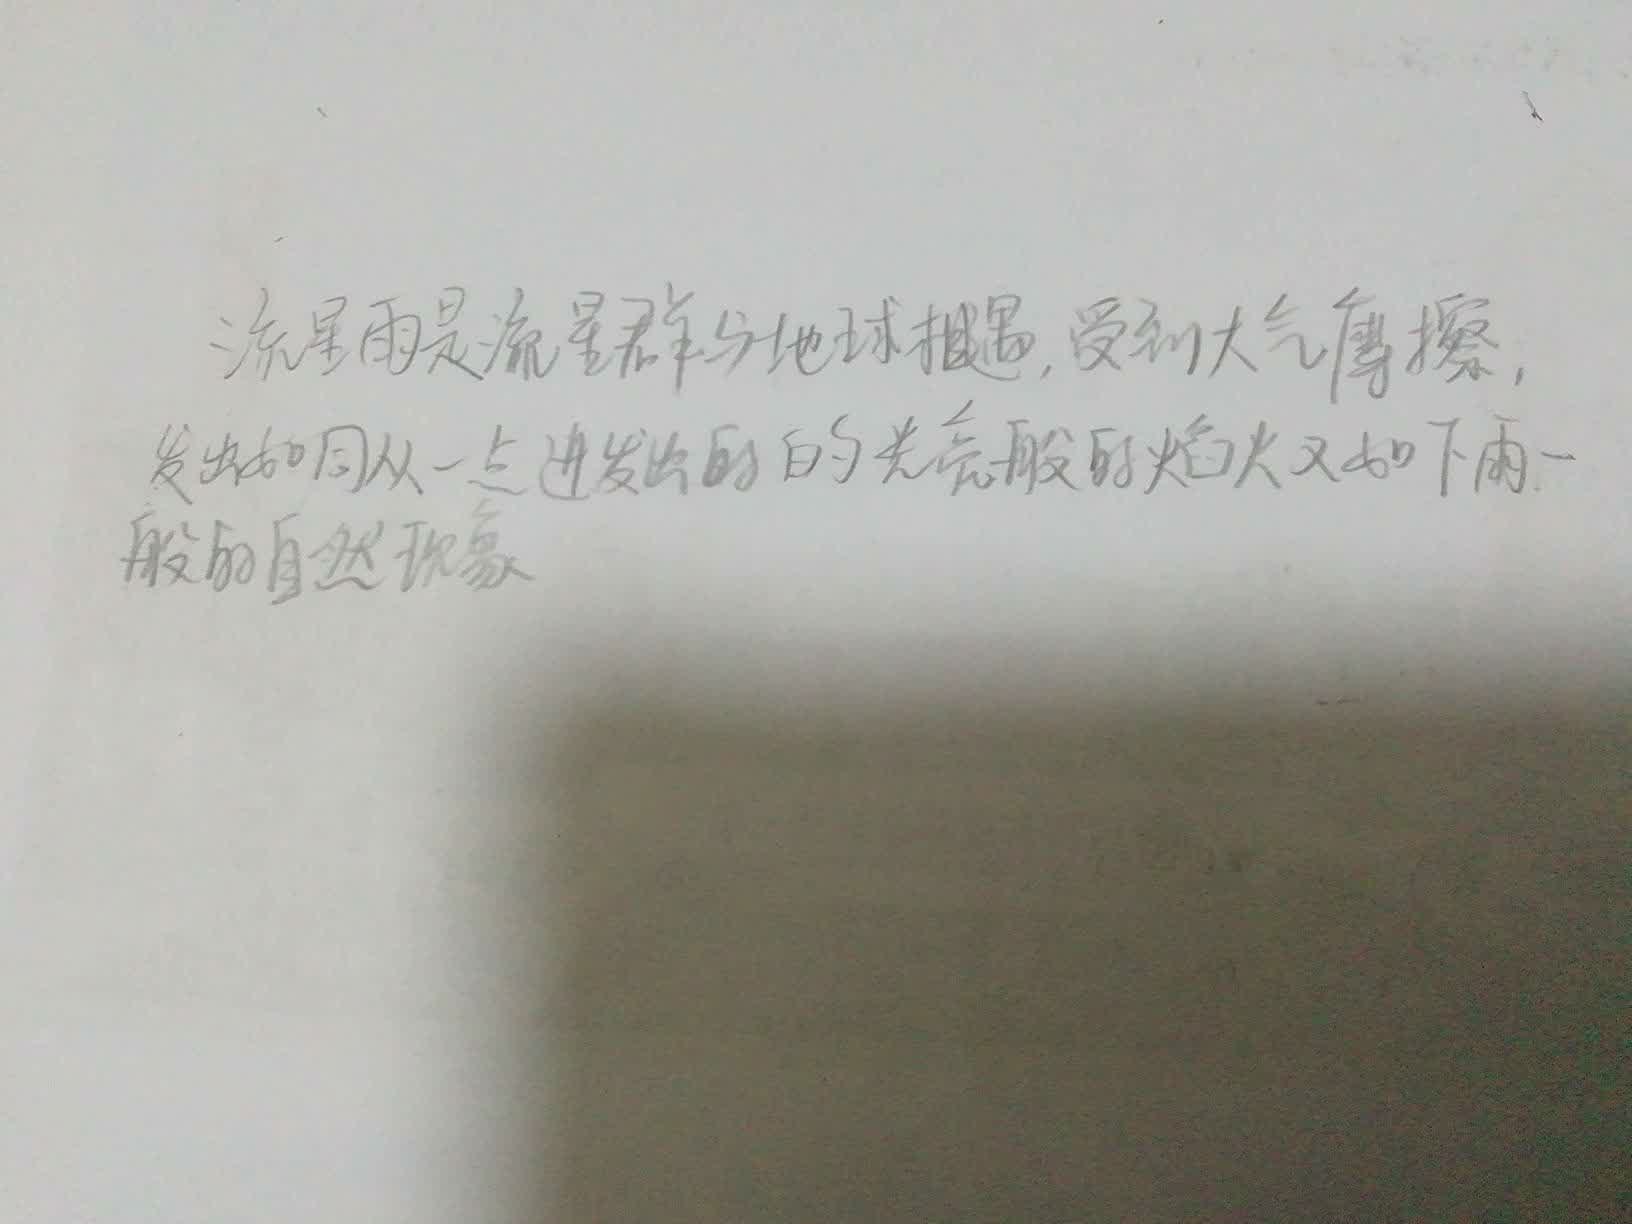 流星雨是流星群与地球相遇,受到大气摩擦,
发出如同从一点迸发出的的光亮般的焰火又如下雨一
般的自然现象